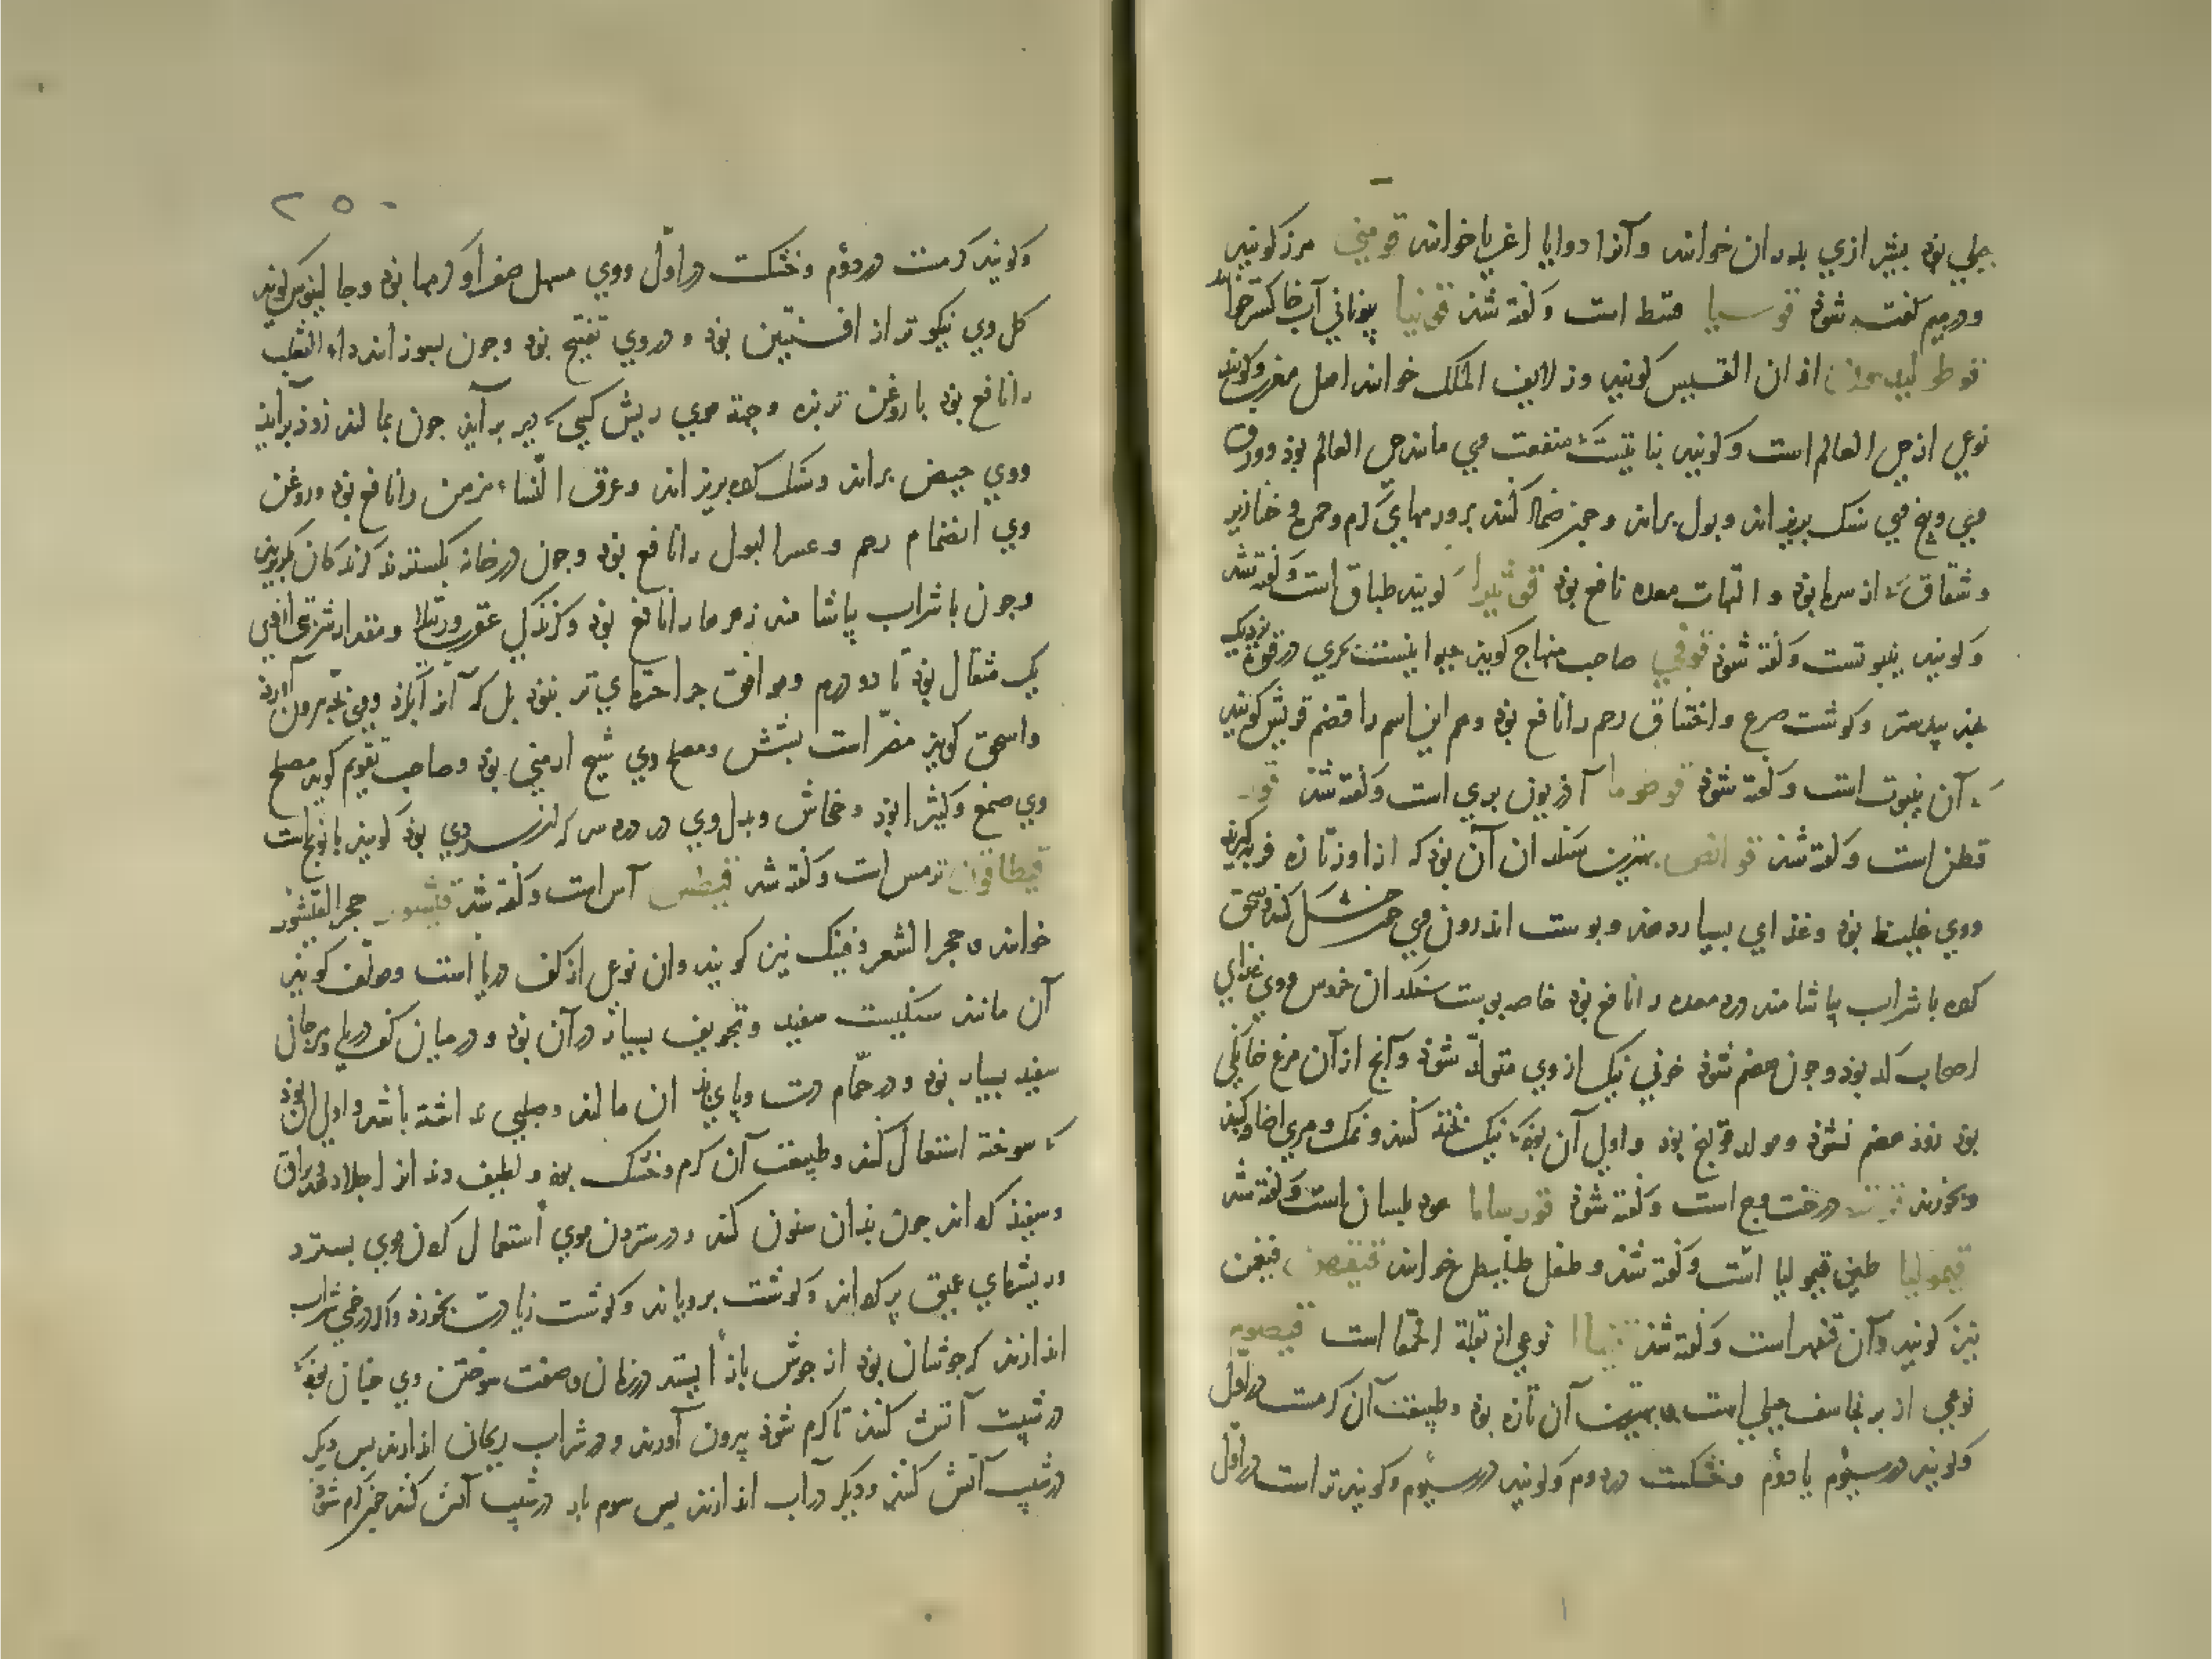 جبلی بود بیشتر ازی بدران خوانند وآنرا دوایا اغریا خوانند قومینی مرز کویند
ودرمیم کفته شوذ قوسیا قسط است وکفته شذ قونیا یونانی آب خاکستر خوانند
اذان القسیس کویند وزلایف الملک خوانند اهل مغرب وکویند
نوعی از حی العالم است وکویند نباتیست منفعت وی مانند حی العالم بوذ وورق
وی وبیخ وی سنک بریزاند وبول براند وجون ضماد کنند برورمهای کرم وحمره وخنازیر
وشقاق که از سرما بوذ والتهاب معده نافع بوذ کویند طباق است وکفته شذ
وکویند ینبوتست وکفته شوذ قوقی صاحب منهاج کوید حیوانیست بحری در قوة نزدیک
بجند بیدستر وکوشت صرع واختناق رحم را نافع بوذ وهم این اسم را قضم قریش کویند
که آن ینبوت است وکفته شوذ قوضوما آذریون بری است وکفته شذ قور
قطن است وکفته شذ قوانص بهترین سنکدان آن بوذ که از اوز تازه فربه کیرند
ووی غلیظ بوذ وغذای بسیار دهد وپوست اندرون وی جون خشک کنند وسحق
کرده با شراب بیاشامند درد معده را نافع بوذ خاصه پوست سنکدان خروس ووی غذای
اصحاب کد بوذ وجون هضم شوذ خونی نیک از وی متولد شوذ وآنج از آن مرغ خانکی
بوذ زوذ هضم نشوذ ومولد قولنج بوذ واولی آن بوذ که نیک پخته کنند ونمک ومری اضافه کنند
وبخورند درخت مج است وکفته شوذ قورسالما عود بلسان است وکفته شذ
قیمولیا طین قیمولیا است وکفته شذ وطفل طلیطل خوانند قیقهن قیقن
نیز کویند وآن قنقهر است وکفته شذ نوعی از بقلة الحمقا است قیصوم
نوعی از برنجاسف جبلی است وبهترین آن تازه بوذ وطبیعت آن کرمست در اول
وکویند در سیوم یا دوم وخشکست در دوم وکویند در سیوم وکویند تر است در اول
۲۵۰
وکویند کرمست در دوم وخشکست در اول ووی مسهل صفرا وکرمها بوذ وجالینوس کوید
کل وی نیکوتر از افسنتین بوذ ودر وی تفتیح بوذ وجون بسوزانند داء الثعلب
را نافع بوذ با روغن تربزه وجهة موی ریش کسی که دیر برآید جون بمالند زوذ برآید
ووی حیض براند وسنک کرده بریزاند وعرق النساء مزمن را نافع بوذ وروغن
وی انضمام رحم وعسر البول را نافع بوذ وجون در خانه بکسترند کزندکان بکریزند
وجون با شراب بیاشامند زهرها را نافع بوذ وکزندکی عقرب ورتیلا ومقدار شربتی از وی
یک مثقال بوذ تا دو درم وموافق جراحتهای تر نبوذ بل که آنرا بکزذ
واسحق کوید مضر است بشش ومصلح وی شیح ارمنی بوذ وصاحب تقویم کوید مصلح
وی صمغ وکثیرا بوذ وخشخاش وبدل وی در درد سر که از سردی بوذ کویند بابونج است
قیطافون ترمس است وکفته شد قیطس آس است وکفته شذ قیشور حجر القیشور
خوانند وحجر الشعر وفینک نیز کویند وان نوعی از کف دریا است ومولف کوید
آن مانند سنکیست سفید وتجویف بسیار در آن بوذ ودرمیان کف دریا ومرجان
سفید بسیار بوذ ودر حمام دست وپای بدان مالند وصلبی نداشته باشذ واولی آن بوذ
که سوخته استعمال کنند وطبیعت آن کرم وخشک بوذ ولطیف دندانرا جلا دهد وبراق
وسفید کرداند جون بدان سنون کنند ودر ستردن موی استعمال کردن موی بسترد
وریشهای عمیق پر کرداند وکوشت برویاند وکوشت زیادت بخورذ واکر در خمی شراب
اندازند که جوشان بوذ از جوش باز ایستد در زمان وصفت سوختن وی جنان بوذ که
در شیب آتش کنند تا کرم شوذ بیرون آورند ودر شراب ریحانی اندازند پس دیکر
در شیب آتش کنند ودیکر در آب اندازند پس سوم بار در شیب آتش کنند جون کرم شوذ